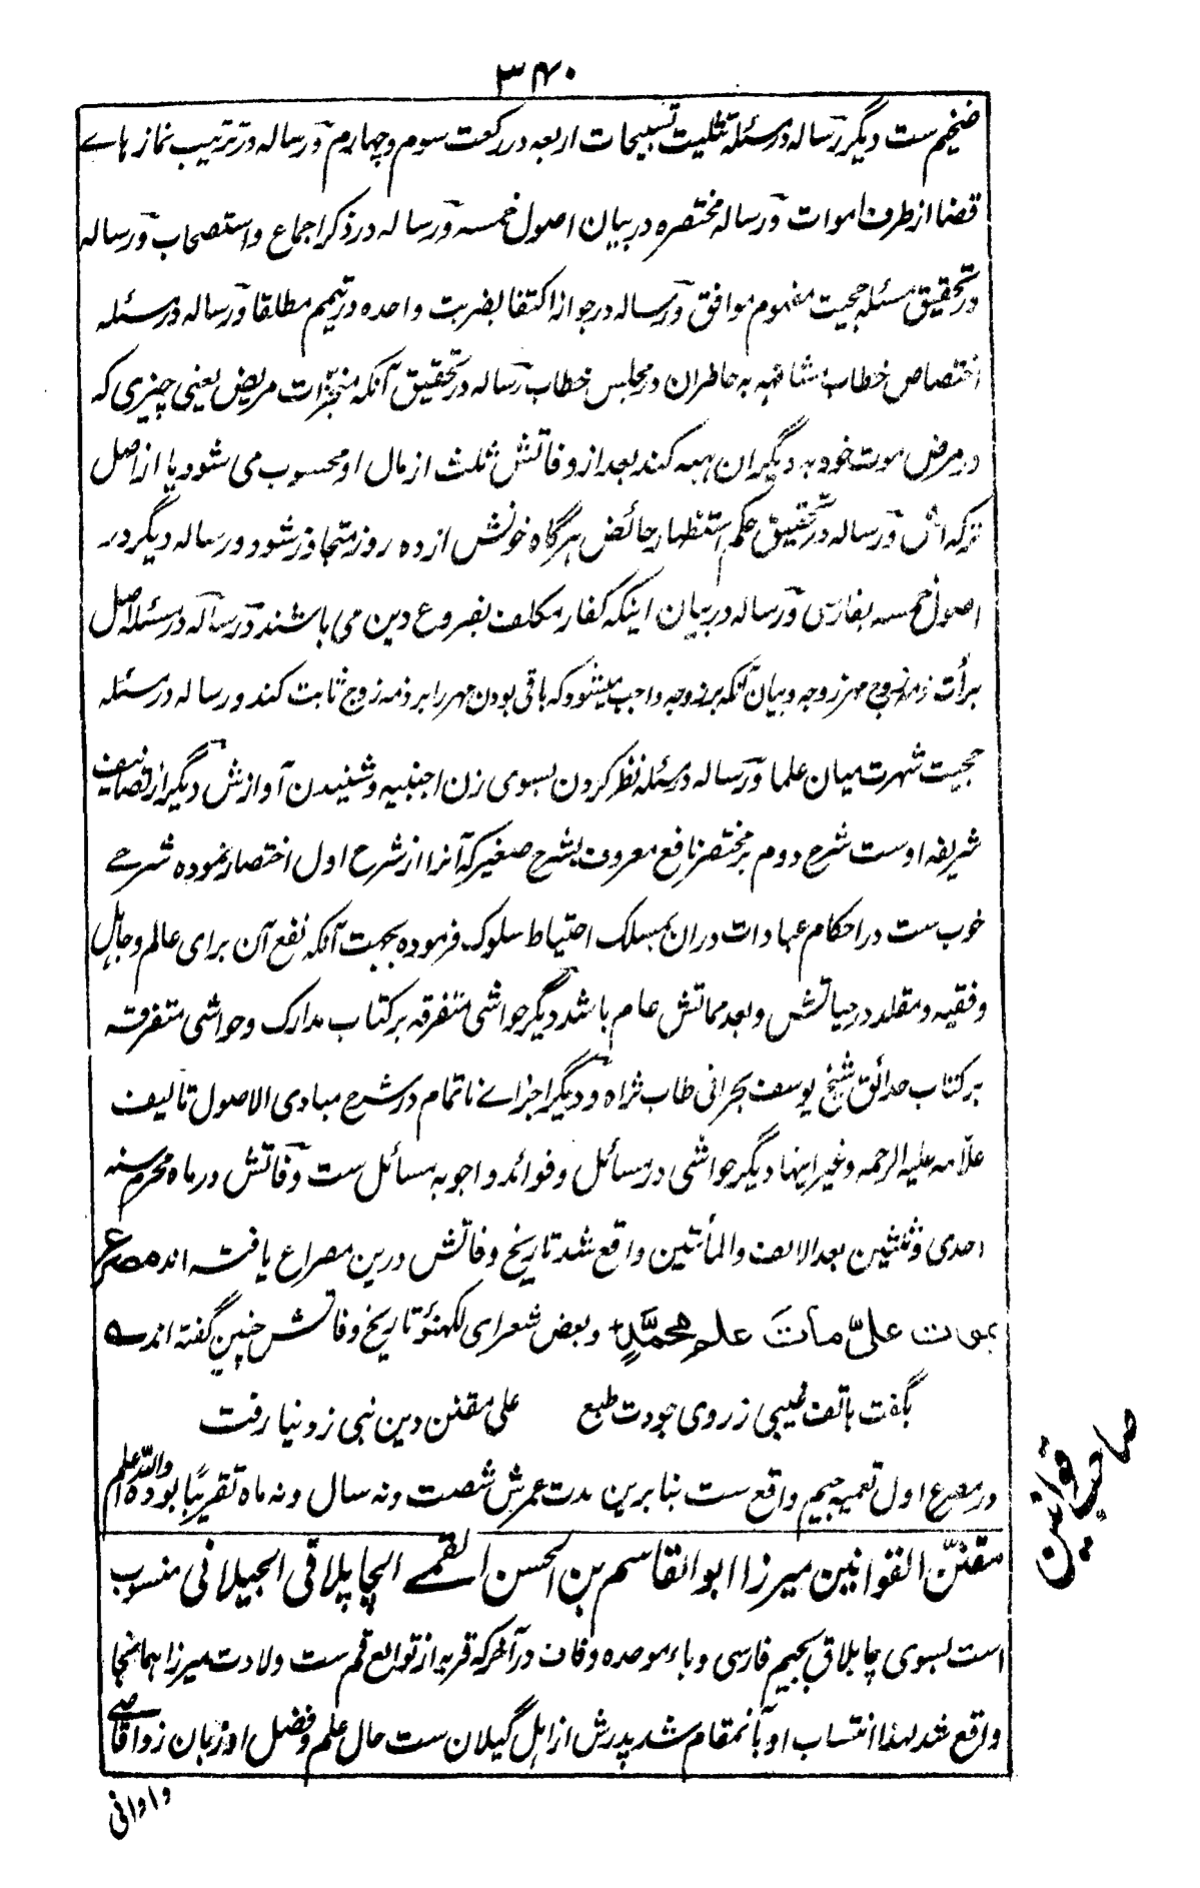 ۳۴۰
ضخیم ست دیگر رساله در مسئله تثلیث تسبیحات اربعه در رکعت سوم و چهارم و رساله در ترتیب نماز هاے
قضا از طرف اموات و رساله مختصره در بیان اصول خمسه و رساله در ذکر اجماع و استصحاب و رساله
در تحقیق مسئله حجیت مفهوم موافق و رساله در جواز اکتفا بضربت واحده در تیمم مطلقا و رساله در مسئله
اختصاص خطاب مشافهه به حاضران در مجلس خطاب رساله در تحقیق آنکه منجزات مریض یعنی چیزی که
در مرض موت خود به دیگران هبه کند بعد از وفاتش ثلث از مال او محسوب می شود یا از اصل
ترکه اش و رساله در تحقیق حکم استظهار حائض هرگاه خونش از ده روز متجاوز شود و رساله دیگر در
اصول خمسه بفارسی و رساله در بیان اینکه کفار مکلف بفروع دین می باشند و رساله در مسئله اصل
برأت ذمه زوج مهر زوجه و بیان آنکه بر زوجه واجب میشود که باقی بودن مهر را بر ذمه زوج ثابت کند و رساله در مسئله
حجیت شهرت میان علما و رساله در مسئله نظر کردن بسوی زن اجنبیه و شنیدن آوازش دیگر از تصانیف
شریفه اوست شرح دوم بر مختصر نافع معروف بشرح صغیر که آنرا از شرح اول اختصار نموده شرحے
خوب ست در احکام عبادات دران بمسلک احتیاط سلوک فرموده بجهت آنکه نفع آن برای عالم و جاهل
و فقیه و مقلد در حیاتش و بعد مماتش عام باشد دیگر حواشی متفرقه بر کتاب مدارک و حواشی متفرقه
بر کتاب حدائق شیخ یوسف بحرانی طاب ثراه و دیگر اجزاے ناتمام در شرح مبادی الاصول تالیف
علامه علیه الرحمه و غیر اینها دیگر حواشی در مسائل و فوائد و اجوبه مسائل ست وفاتش در ماه محرم سنه
احدی و ثلثین بعد الالف والمأتین واقع شد تاریخ وفاتش درین مصراع یافته اند مصرع
بموت علیّ مات علم محمّدٍ و بعض شعرای لکهنؤ تاریخ وفاتش چنین گفته اند ؎
بگفت هاتف غیبی ز روی جودت طبع علی مقنن دین نبی ز دنیا رفت
در مصرع اول تعمیه جیم واقع ست بنابرین مدت عمرش شصت و نه سال و نه ماه تقریبًا بوده والله اعلم
مقنّن القوانین میرزا ابو القاسم بن الحسن القمے الچاپلاقی الجیلانی منسوب
است بسوی چاپلاق بجیم فارسی و باء موحده و قاف در آخر که قریه از توابع قم ست ولادت میرزا همانجا
واقع شد لهذا انتساب او بآنمقام شد پدرش از اهل گیلان ست حال علم و فضل او زبان زد اقاصے
و ادانی
صاحب قوانین